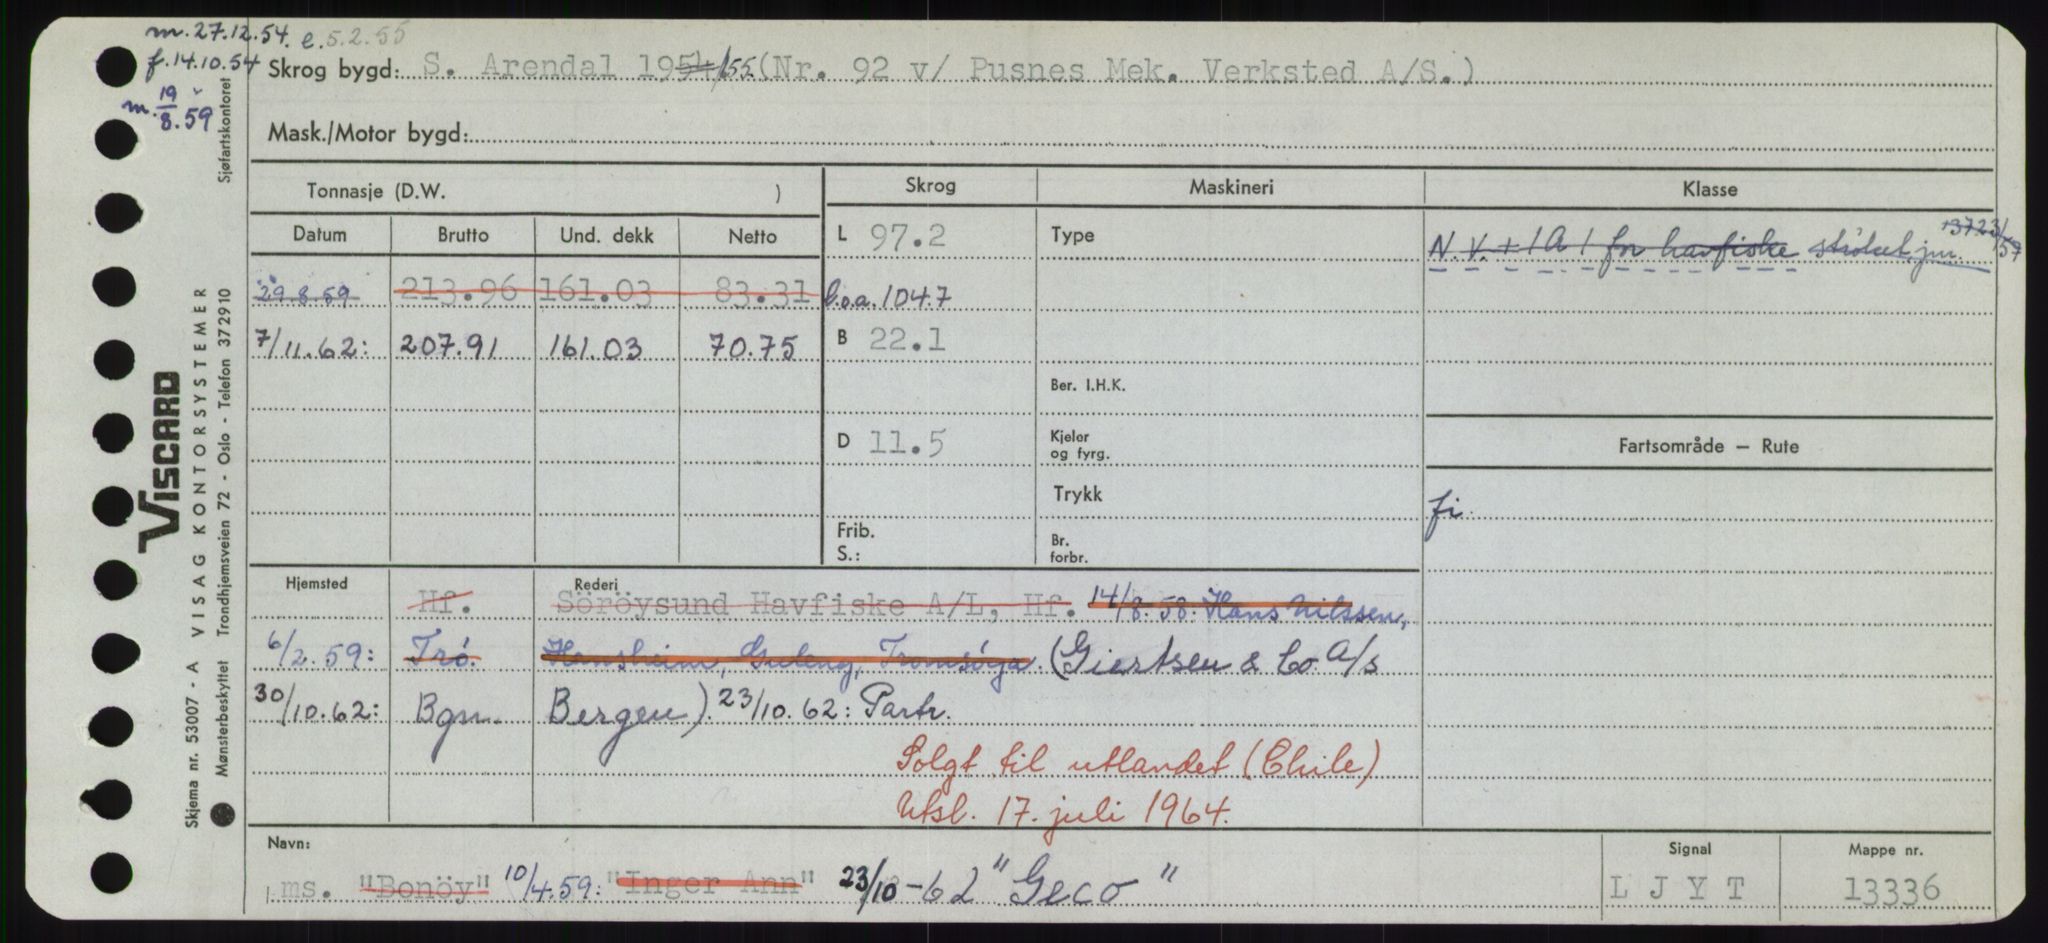 m. 27.12.54. e. 5.2.55
f. 14.10.54
m. 19/8.59
Skrog bygd: S. Arendal 1954/55 (Nr. 92 v/ Pusnes Mek. Verksted A/S.)
Mask./Motor bygd:
Tonnasje (D.W. )
Skrog
Maskineri
Klasse
Datum Brutto Und. dekk Netto
L 97.2
Type
N.V. + 1A1 for havfiske strøket jnr. 3723/57
29.8.59 213.96 161.03 83.31
l.o.a. 104.7
7/11.62: 207.91 161.03 70.75
B 22.1
Ber. I.H.K.
D 11.5
Kjeler
og fyrg.
Fartsområde — Rute
Trykk
fi.
Frib.
S.:
Br.
forbr.
Hjemsted Rederi
Hf. Söröysund Havfiske A/L, Hf. 14/8.58: Hans Nilssen,
6/2.59: Trö. Hansheim, Guleng, Tromsöya. (Giertsen & Co. A/S
30/10.62: Bgn. Bergen). 23/10.62: Partr.
Solgt til utlandet (Chile)
Utsl. 17. juli 1964.
Navn:
Signal
Mappe nr.
ms. "Bonöy" 10/4.59: "Inger Ann" 23/10-62 "Geco"
L J Y T
13336
VISCARD
Skjema nr. 53007 - A VISAG KONTORSYSTEMER
Mønsterbeskyttet Trondhjemsveien 72 - Oslo - Telefon 372910
Sjøfartskontoret